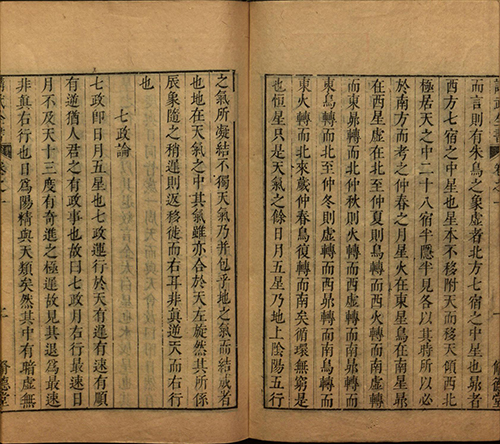 中而言則有朱鳥之象虛者北方七宿之中星也昴者
西方七宿之中星也星本不移附天而移天傾西北
極居天之中二十八宿半隱半見各以其時所以必
於南方而考之仲春之月星火在東星鳥在南星昴
在西星虛在北至仲夏則鳥轉而西火轉而南虛轉
而東昴轉而北仲秋則火轉而西虛轉而南昴轉而
東鳥轉而北至仲冬則虛轉而西昴轉而南鳥轉而
東火轉而北來歲仲春鳥復轉而南矣循環無窮是
也恒星只是天氣之餘日月五星乃地上陰陽五行
之氣所凝結不獨天氣乃并包乎地之氣而結成者
也地在天氣之中其氣雖亦合於天左旋然其所係
辰象隨之稍遲則返移徙而右耳非眞逆天而右行
也
七政論
七政卽日月五星也七政運行於天有遲有速有順
有逆猶人君之有政事也故曰七政月右行最速日
月不及天十三度有奇進之極遲故見其退爲最速
非眞右行也日爲陽精與天類矣然其中有暗虛無
卷之十